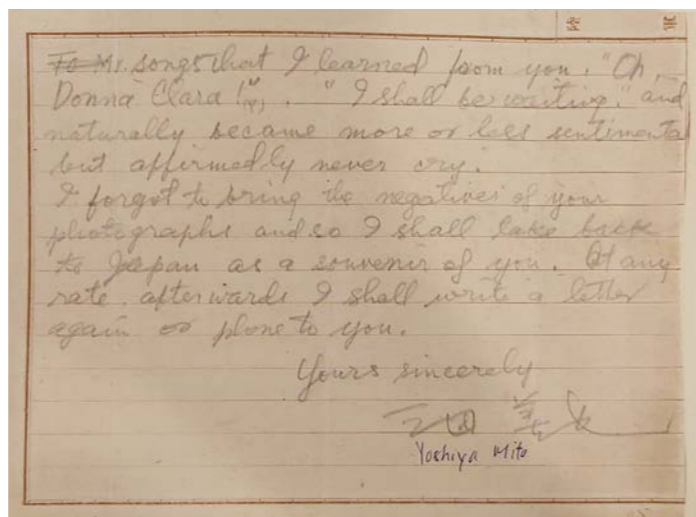 To Mr. songs that I learned from you. "Oh,
Donna Clara!". "I shall be waiting." and
naturally became more or less sentimental
but affirmedly never cry.
I forgot to bring the negatives of your
photographs and so I shall take back
to Japan as a souvenir of you. At any
rate afterwards I shall write a letter
again or phone to you.
Yours sincerely
三田
Yoshiya Mita